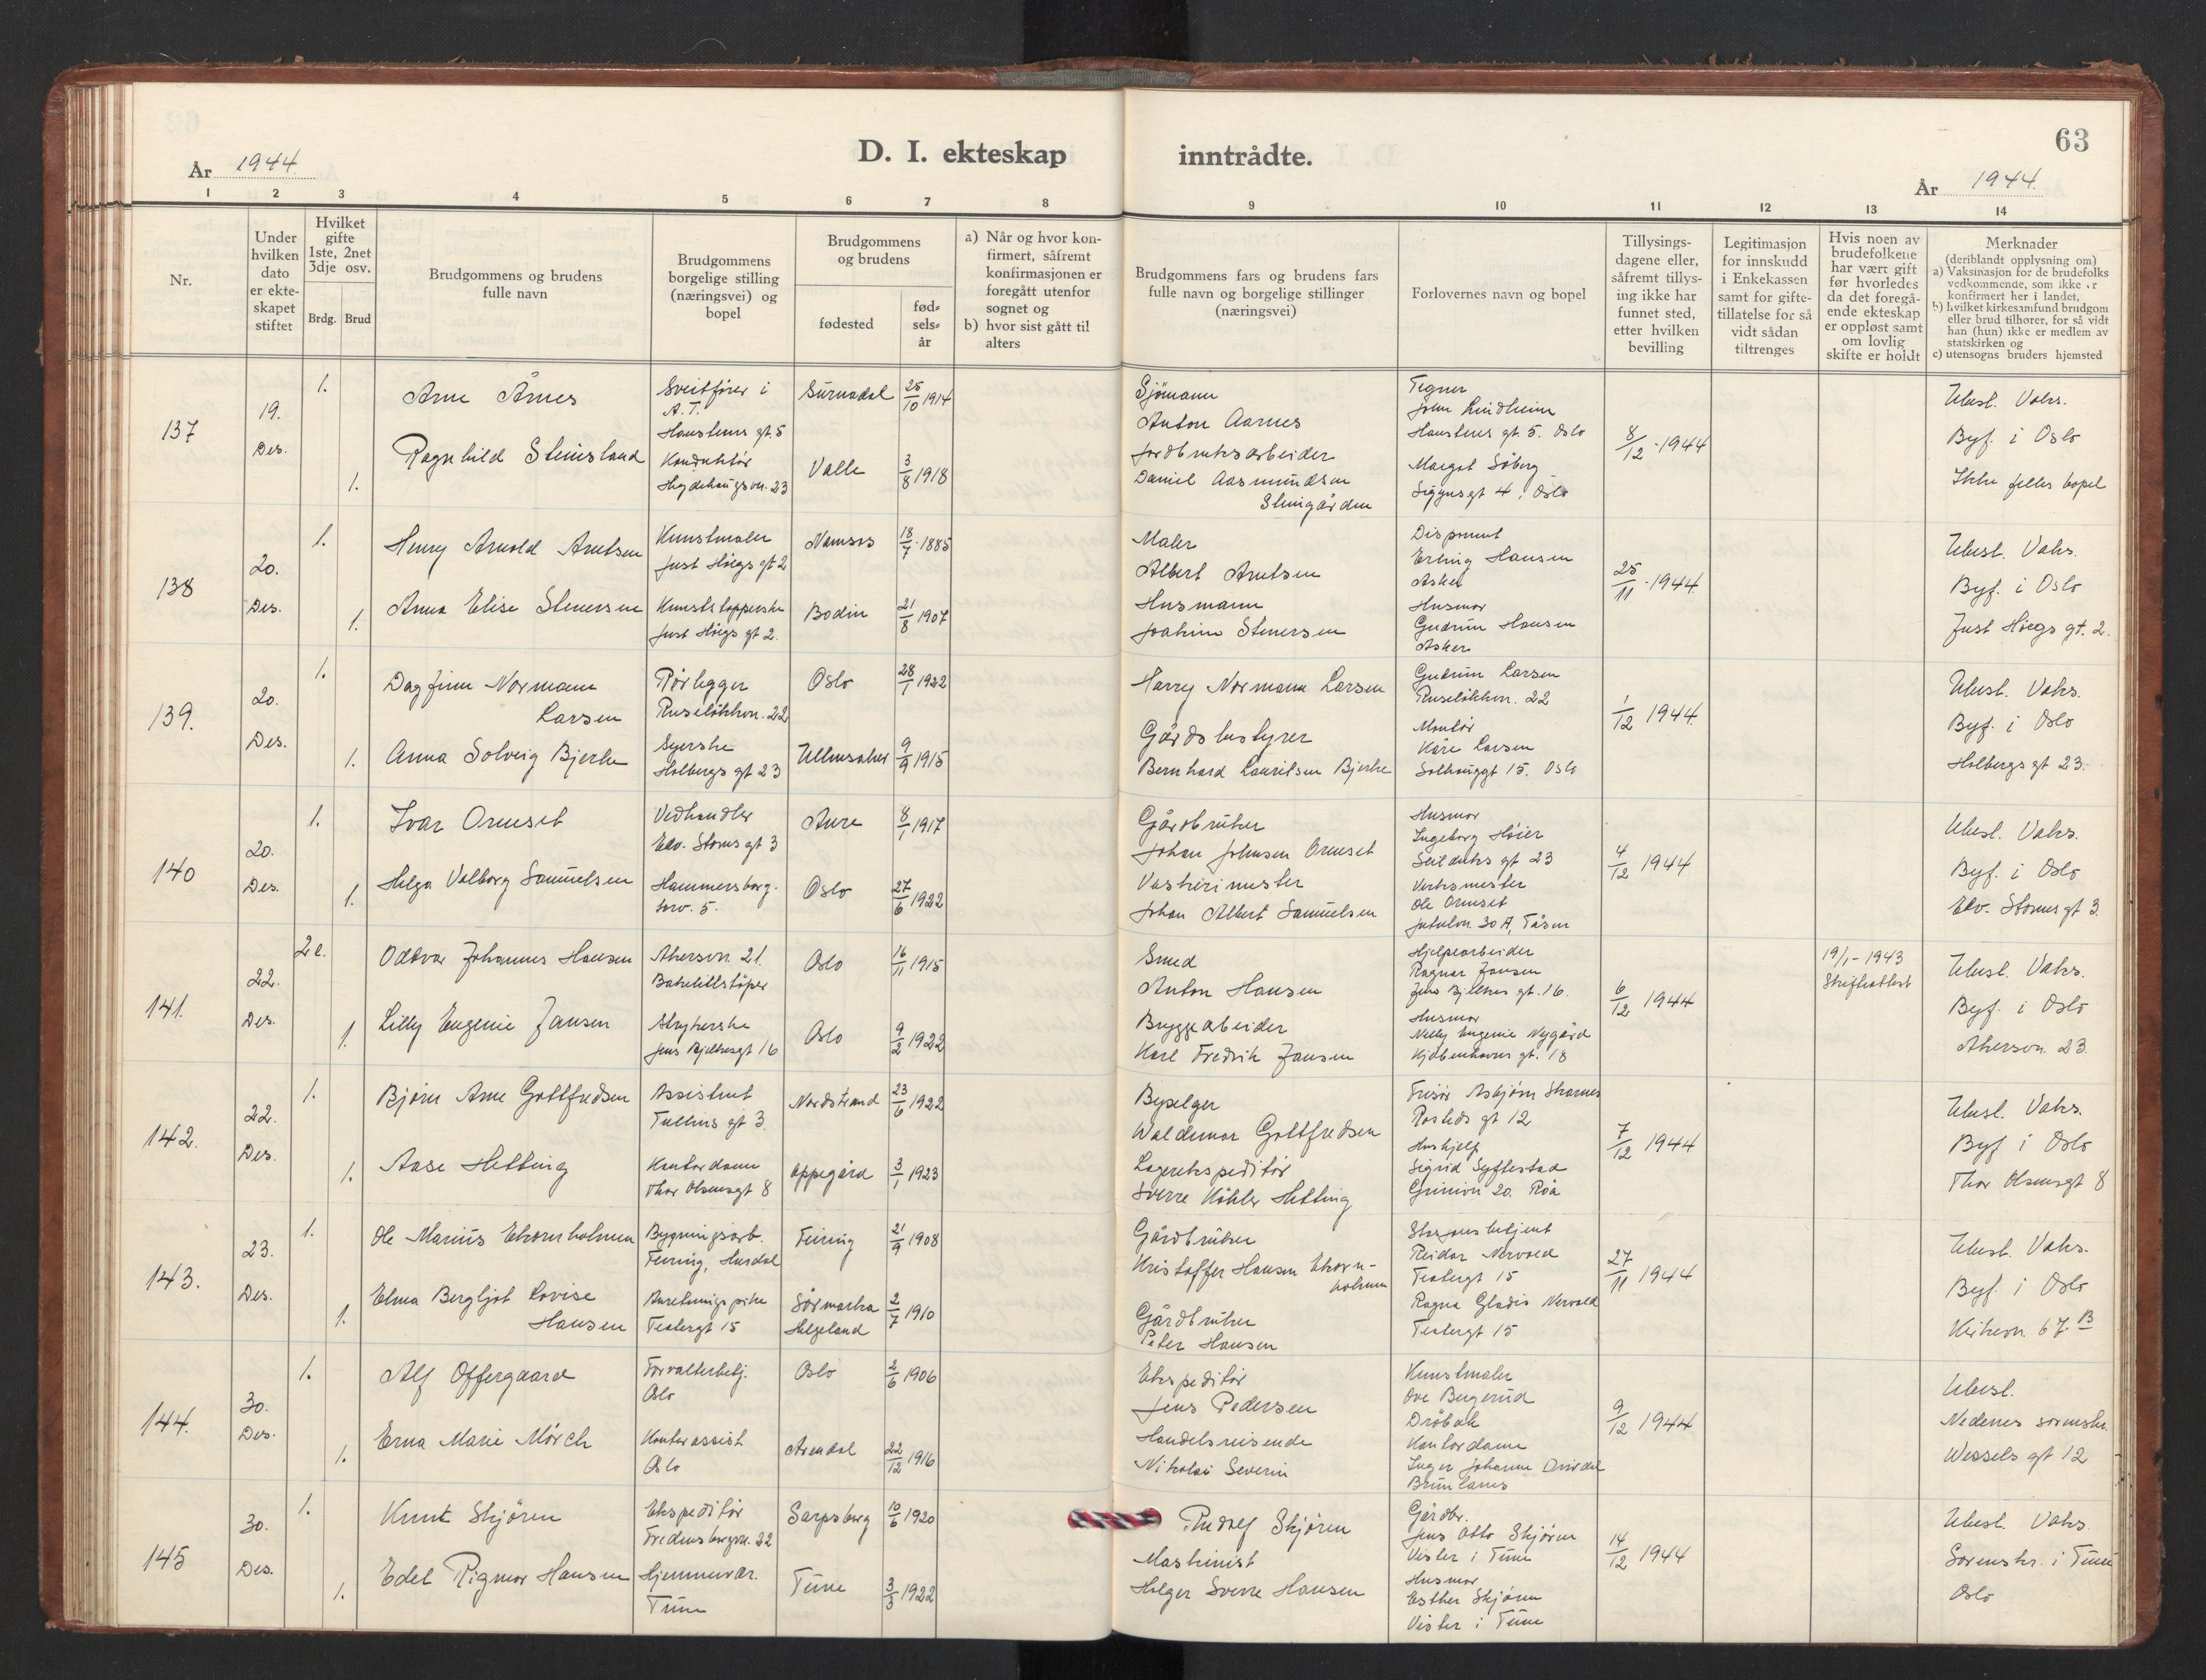 År 1944.
D. I. ekteskap inntrådte.
63
År 1944.
1 2 3 4 5 6 7 8 9 10 11 12 13 14
Nr.
Under hvilken dato er ekteskapet stiftet
Hvilket gifte 1ste, 2net 3dje osv.
Brdg. Brud
Brudgommens og brudens fulle navn
Brudgommens borgelige stilling (næringsvei) og bopel
Brudgommens og brudens
fødested
fødselsår
a) Når og hvor konfirmert, såfremt konfirmasjonen er foregått utenfor sognet og
b) hvor sist gått til alters
Brudgommens fars og brudens fars fulle navn og borgelige stillinger (næringsvei)
Forlovernes navn og bopel
Tillysingsdagene eller, såfremt tillysing ikke har funnet sted, etter hvilken bevilling
Legitimasjon for innskudd i Enkekassen samt for giftetillatelse for så vidt sådan tiltrenges
Hvis noen av brudefolkene har vært gift før hvorledes da det foregående ekteskap er oppløst samt om lovlig skifte er holdt
Merknader
(deriblandt opplysning om)
a) Vaksinasjon for de brudefolks vedkommende, som ikke er konfirmert her i landet,
b) hvilket kirkesamfund brudgom eller brud tilhører, for så vidt han (hun) ikke er medlem av statskirken og
c) utensogns bruders hjemsted
137
19. Des.
1.
Arne Årnes
Sveitfører i
A.T.
Hausteens gt. 5
Surnadal
25/10 1914
Sjømann
Anton Aarnes
Tegner
John Lindheim
Hausteens gt. 5. Oslo
8/12 - 1944
Utest. Vaks.
Byf. i Oslo
Ikke felles bopel
1.
Ragnhild Steinsland
Konduktør
Heydehaugsvn. 23
Valle
3/8 1918
Jordbruksarbeider
Daniel Aasmundsen
Steingården
Margot Søberg
Siggurdsgt 4. Oslo
138
20. Des.
1.
Henry Arnold Arntsen
Kunstmaler
Just Høegs gt 2
Namsos
18/7 - 1885
Maler
Albert Arntsen
Disponent
Erling Hansen
Asker
25/11 - 1944
Utest. Vaks.
Byf. i Oslo
Just Høegs gt. 2.
1.
Anna Elise Stenersen
Kunststopperske
Just Høegs gt 2.
Bodin
21/8 1907
Husmann
Joakim Stenersen
Husmor
Gudrun Hansen
Asker
139.
20. Des.
1.
Dagfinn Normann
Larsen
Rørlegger
Ruseløkkvn. 22
Oslo
28/1 1922
Harry Normann Larsen
Gudrun Larsen
Ruseløkkvn. 22
1/12 1944
Utest. Vaks.
Byf. i Oslo
Holbergs gt 23.
1.
Anna Solveig Bjerke
Syerske
Holbergs gt 23
Ullensaker
9/9 1915
Gårdsbestyrer
Bernhard Lauritsen Bjerke
Montør
Kåre Larsen
Solhauggt 15. Oslo
140
20. Des.
1.
Ivar Ormset
Vedhandler
Edv. Storms gt 3
Aure
8/1 1917
Gårdbruker
Johan Johnsen Ormset
Husmor
Ingeborg Høier
Seilduks gt 23
4/12 1944
Utest. Vaks.
Byf. i Oslo
Edv. Storms gt 3.
1.
Helga Valborg Samuelsen
Hammersborg-
torv. 5.
Oslo
27/6 1922
Vaskerimester
Johan Albert Samuelsen
Verksmester
Ole Ormset
Jutulvn 30 A, Tåsen
141.
22. Des.
2e.
Oddvar Johannes Hansen
Akersvn. 21.
Bakelittstøper
Oslo
16/11 1915
Smed
Anton Hansen
Hjelpearbeider
Ragnar Jansen
Jens Bjelkes gt. 16.
6/12 1944
19/1 - 1943
Skifteattest
Utest. Vaks.
Byf. i Oslo
Akersvn. 23.
1.
Lilly Eugenie Jansen
Strykerske
Jens Bjelkesgt 16
Oslo
9/2 1922
Bryggearbeider
Karl Fredrik Jansen
Husmor
Nelly Eugenie Nygård
Kjøbenhavns gt. 18
142.
22. Des.
1.
Bjørn Arne Gottfredsen
Assistent
Tullins gt 3.
Nordstrand
23/6 1922
Byselger
Waldemar Gottfredsen
Frisør Asbjørn Skarnes
Rosteds gt 12
7/12 1944
Utest. Vaks.
Byf i Oslo
Thor Olsensgt 8
1.
Aase Hetting
Kontordame
Thor Olsensgt 8
Oppegård
3/1 1923
Lagerekspeditør
Sverre Køhler Hetting
Hushjelp
Sigrid Syftestad
Grinivn 20. Røa
143.
23. Des.
1.
Ole Marius Ekornholmen
Bygningsarb.
Feiring, Hurdal
Feiring
21/9 1908
Gårdbruker
Kristoffer Hansen Ekorn-
holmen
Stasjonsbetjent
Reidar Nervold
Teatergt 15
27/11 1944
Utest. Vaks.
Byf. i Oslo
Kirkevn. 67. B
1.
Elma Bergljot Lovise
Hansen
Anretningspike
Teatergt 15
Sørmarka
Helgeland
2/7 1910
Gårdbruker
Peter Hansen
Ragna Gladis Nervold
Teatergt 15
144.
30. Des.
1.
Alf Offergaard
Forvalterbetj.
Oslo
Oslo
2/6 1906
Ekspeditør
Jens Pedersen
Kunstmaler
Ove Bugerud
Drøbak
9/12 1944
Utest.
Nedenes sorenskr.
Wessels gt 12
1.
Erna Marie Mørch
Kontorassist
Oslo
Arendal
22/12 1916
Handelsreisende
Nikolai Severin
Kontordame
Inger Johanne
Brunlanes
145
30. Des.
1.
Knut Skjøren
Ekspeditør
Fredensborgvn. 22
Sarpsborg
10/6 1920
Rudolf Skjøren
Gårdbr.
Jens Otto Skjøren
Vister i Tune
14/12 1944
Utest. Vaks.
Sorenskr. i Tune
Oslo
1.
Edel Rigmor Hansen
Hjemmevær.
Tune
Tune
3/3 1922
Maskinist
Holger Sverre Hansen
Husmor
Esther Skjøren
Vister i Tune